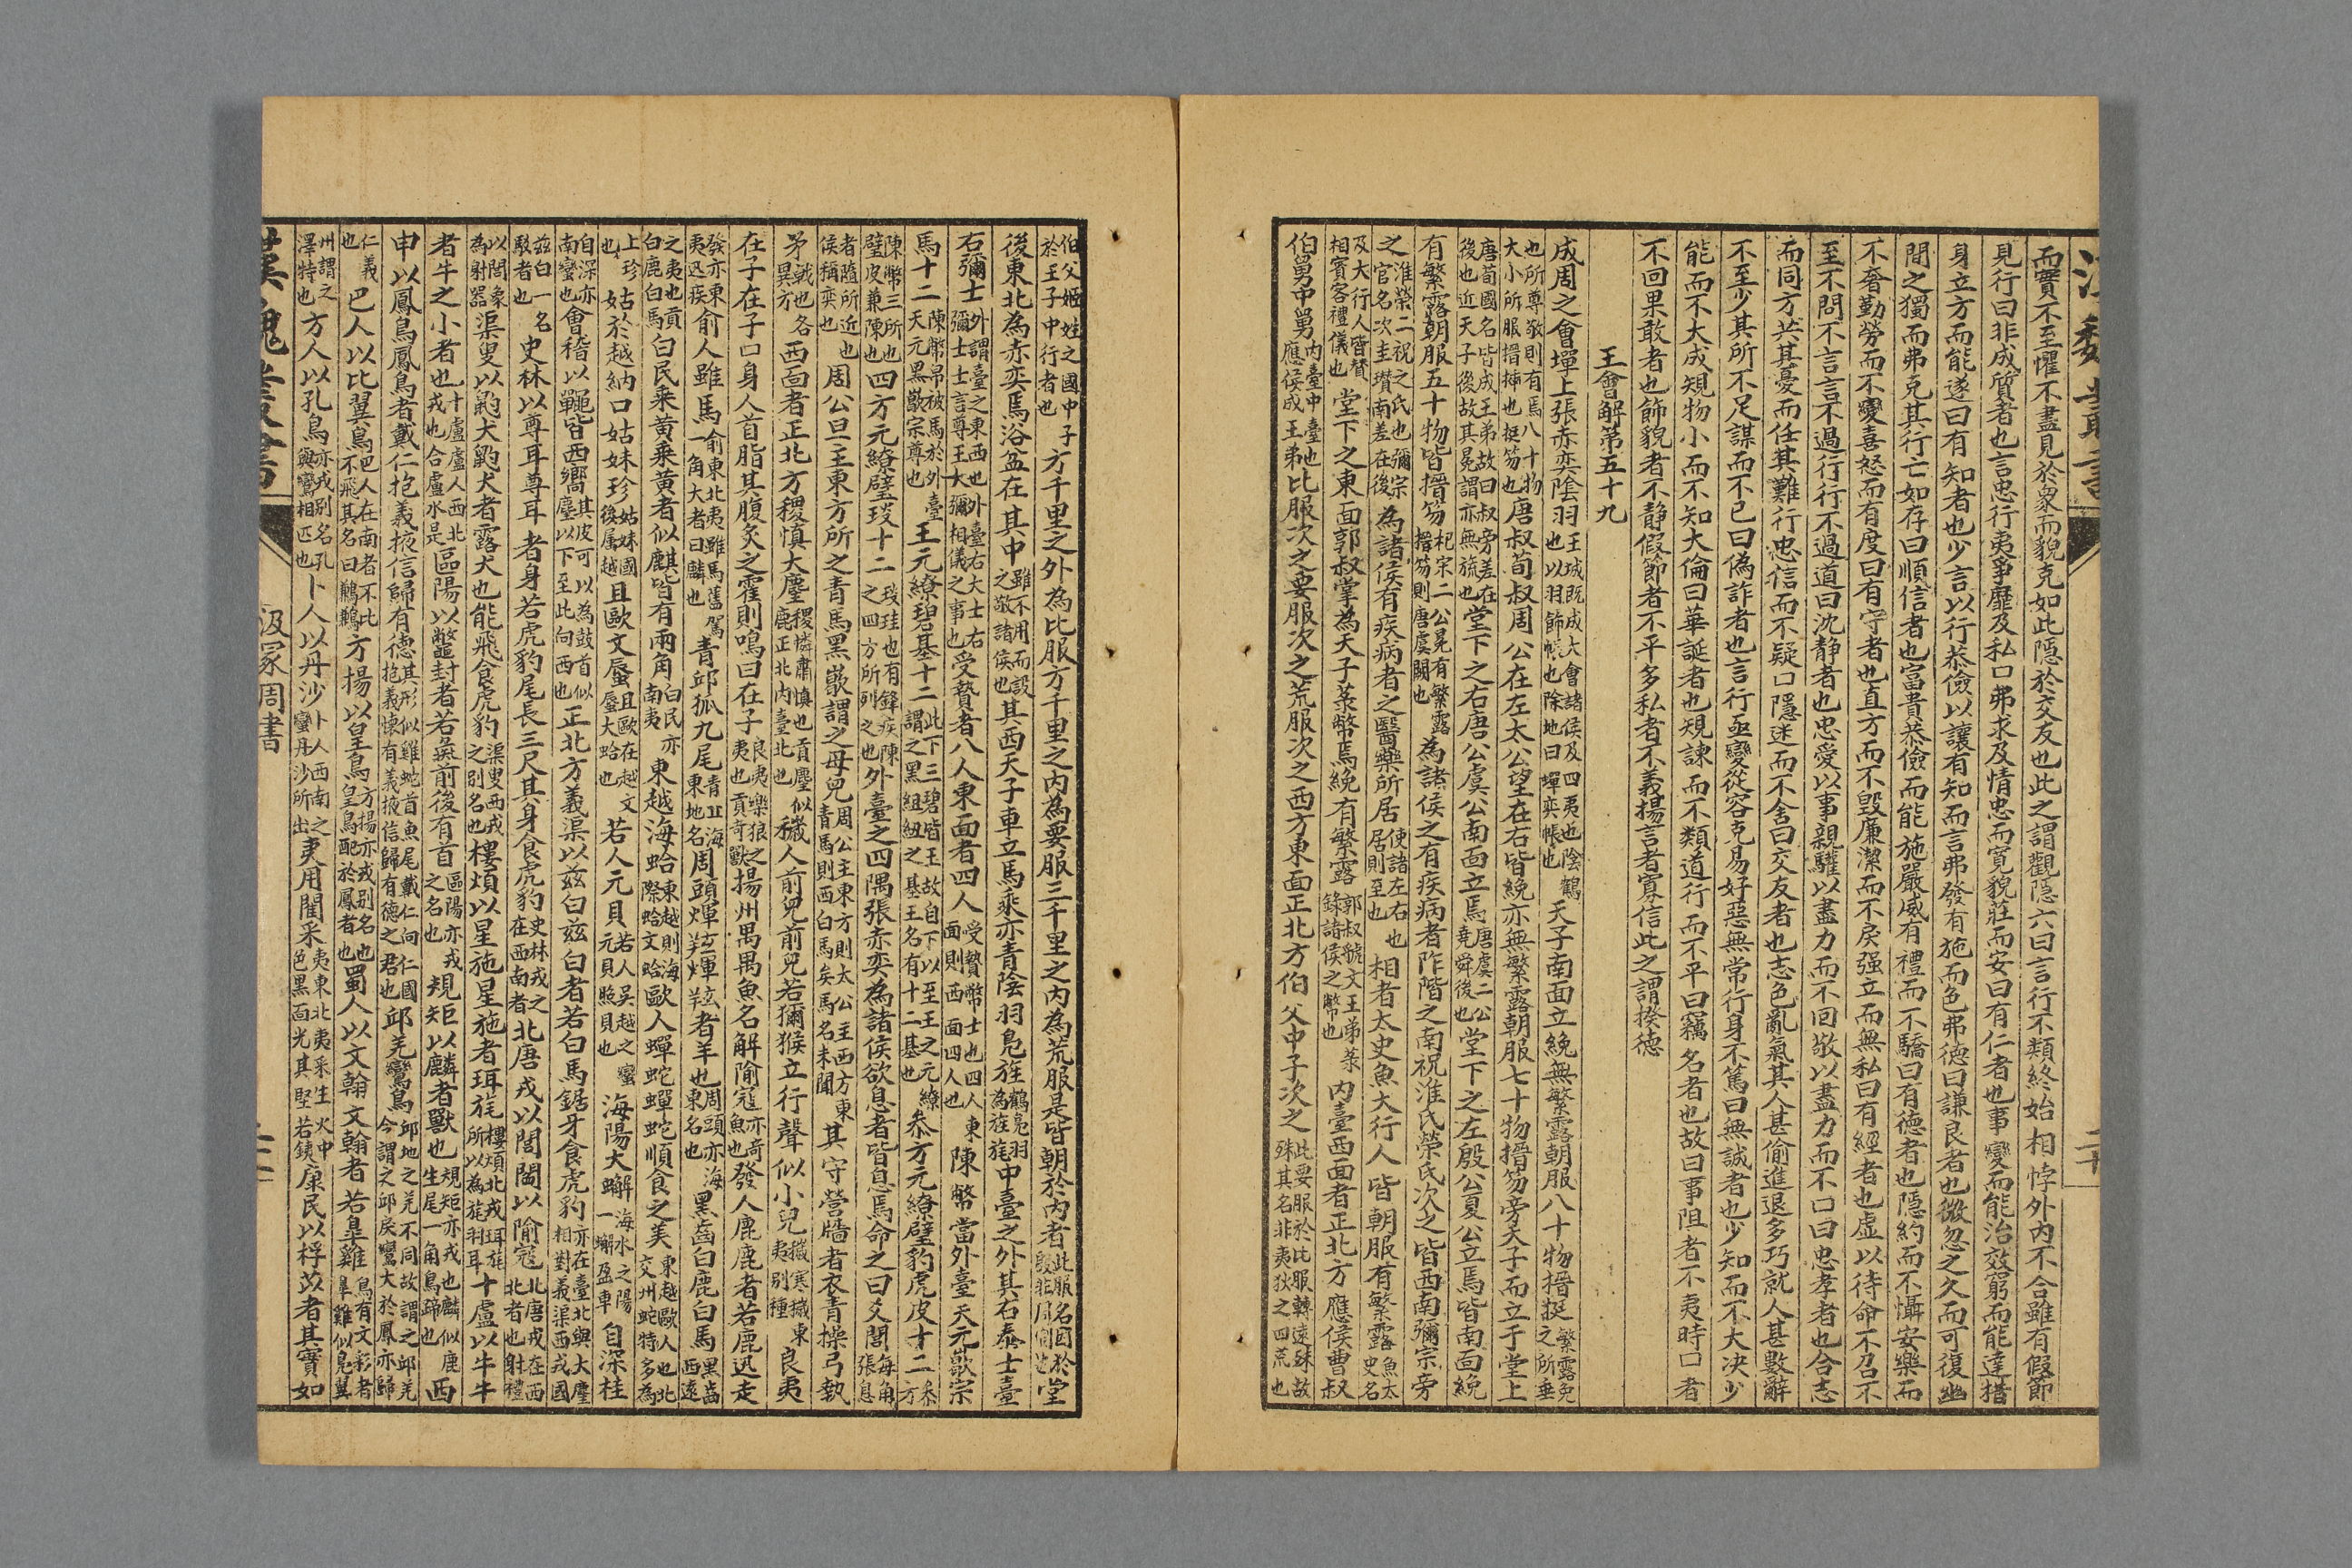 而實不至懼不盡見於衆而貌克如此隱於交友也此之謂觀隱六曰言行不類終始相悖外内不合雖有假節
見行曰非成質者也言忠行夷爭靡及私口弗求及情忠而寛貌莊而安曰有仁者也事變而能治效窮而能達措
身立方而能遂曰有知者也少言以行恭儉以讓有知而言弗發有施而色弗徳曰謙良者也微忽之久而可復幽
間之獨而弗克其行亡如存曰順信者也富貴恭儉而能施嚴威有禮而不驕曰有德者也隱約而不懾安樂而
不奢勤勞而不變喜怒而有度曰有守者也直方而不毀廉潔而不戾强立而無私曰有經者也虛以待命不召不
至不問不言言不過行行不過道曰沈静者也忠愛以事親驩以盡力而不回敬以盡力而不口曰忠孝者也合志
而同方共其憂而任其難行忠信而不疑口隱迷而不舍曰交友者也志色亂氣其人甚偷進退多巧就人甚數辭
不至少其所不足謀而不已曰偽詐者也言行亟變從容克易好惡無常行身不篤曰無誠者也少知而不大决少
能而不大成規物小而不知大倫曰華誕者也規諫而不類道行而不平曰竊名者也故曰事阻者不夷時口者
不回果敢者也飾貌者不静假節者不平多私者不義揚言者寡信此之謂揆德
王會解第五十九
成周之會墠上張赤奕陰羽王城既成大會諸侯及四夷也陰鶴也以羽飾帳也除地曰墠奕帳也天子南面立絻無繁露朝服八十物搢挺繁露冕之所垂
也所尊敬則有焉八十物大小所服搢揷也挺笏也唐叔荀叔周公在左太公望在右皆絻亦無繁露朝服七十物搢笏旁天子而立于堂上
唐荀國名皆成王弟故曰叔旁差在後也近天子後故其冕謂亦無旒也堂下之右唐公虞公南面立焉唐虞二公堯舜後也堂下之左殷公夏公立焉皆南面絻
有繁露朝服五十物皆搢笏杞宋二公冕有繁露搢笏則唐虞闕也為諸侯之有疾病者阼階之南祝淮氏榮氏次之皆西南彌宗旁
之淮榮二祝之氏也彌宗官名次圭瓚南差在後為諸侯有疾病者之醫藥所居使諸左右也居則至也相者太史魚大行人皆朝服有繁露魚太史名
及大行人皆贊相賓客禮儀也堂下之東面郭叔掌為天子菉幣焉絻有繁露郭叔虢文王弟菉錄諸侯之幣也内臺西面者正北方應侯曹叔
伯舅中舅内臺中臺也應侯成王弟比服次之要服次之荒服次之西方東面正北方伯父中子次之此要服於比服轉遠殊故殊其名非夷狄之四荒也
漢魏叢書
伯父姬姓之國中子於王子中行者也方千里之外為比服方千里之内為要服三千里之内為荒服是皆朝於内者此服名因於殷非周制也堂
後東北為赤奕焉浴盆在其中雖不用而設之敬諸侯也其西天子車立馬乘亦青陰羽鳧旌鶴鳧羽為旌旄中臺之外其右泰士臺
右彌士外謂臺之東西也外臺右大士右彌士士言尊王大彌相儀之事也受贄者八人東面者四人受贄幣士也四人東面則西面四人也陳幣當外臺天元㲠宗
馬十二陳幣帛被馬於外臺天元黑㲠宗尊也王元繚碧基十二此下三碧皆王故自下以至王之元繚謂之黑組紐之基王名有十二基也叅方元繚璧豹虎皮十二叅方
陳幣三所也璧皮兼陳也四方元繚璧琰十二琰珪也有鋒疾陳之四方所列之也外臺之四隅張赤奕為諸侯欲息者皆息焉命之曰爻閭每角張息
者隨所近也侯稱奕也周公旦主東方所之青馬黑㲠謂之母兒周公主東方則太公主西方東青馬則西白馬矣馬名未聞其守營牆者衣青操弓執
矛戟也各異方西面者正北方稷慎大麈稷慎肅慎也貢麈似鹿正北内臺北也穢人前兒前兒若獼猴立行聲似小兒穢寒穢東夷别種良夷
在子在子口身人首脂其腹炙之霍則鳴曰在子良夷樂狼之夷也貢奇獸揚州禺禺魚名解隃冦亦奇魚也發人鹿鹿者若鹿迅走
發亦東夷迅疾俞人雖馬俞東北夷雖馬巂駕一角大者曰麟也青邱狐九尾青丘海東地名周頭煇羝煇羝者羊也周頭亦海東名也黑齒白鹿白馬黑齒西遠
之夷也貢白鹿白馬白民乘黄乘黄者似麒皆有兩角白民亦南夷東越海蛤東越則海際蛤文蛤歐人蟬蛇蟬蛇順食之美東越歐人也北交州蛇特多為
上珍也姑於越納口姑妹珍姑妹國後屬越且歐文蜃且歐在越文蜃大蛤也若人元貝若人吳越之蠻元貝照貝也海陽大蠏海水之陽一蠏盈車自深桂
自深亦南蠻也會稽以䵷皆西嚮其皮可以為鼓首似麈以下至此向西也正北方義渠以兹白兹白者若白馬鋸牙食虎豹亦在臺北與大麈相對義渠西戎國
兹白一名駮者也史林以尊耳尊耳者身若虎豹尾長三尺其身食虎豹史林戎之在西南者北唐戎以閭閭以隃冦北唐戎在西北者也射禮
以閭象為射器渠叟以䶂犬䶂犬者露犬也能飛食虎豹渠叟西戎之别名也樓煩以星施星施者珥旄樓煩北戎珥旄所以為旄羽耳十盧以牛牛
者牛之小者也十盧盧人西北戎也合盧水是區陽以鼈封者若彘前後有首區陽亦戎之名也規矩以麟者獸也規矩亦戎也麟似鹿生尾一角鳥蹄也西
申以鳳鳥鳳鳥者戴仁抱義掖信歸有德其形似雞蛇首魚尾戴仁向仁國抱義懷有義掖信歸有德之君也邱羌鸞鳥邱地之羌不同故謂之邱羌今謂之邱戾鸞大於鳳亦歸
仁義也巴人以比翼鳥巴人在南者不比不飛其名曰鶼鶼方揚以皇鳥方揚亦戎别名也皇鳥配於鳳者也蜀人以文翰文翰者若臯雞鳥有文彩者臯雞似鳧冀
州謂之澤特也方人以孔鳥亦戎别名孔與鸞相匹也卜人以丹沙卜人西南之蠻丹沙所出夷用䦨采夷東北夷采生火中色黑面光其堅若鐵康民以桴苡者其實如
漢魏叢書
汲冢周書